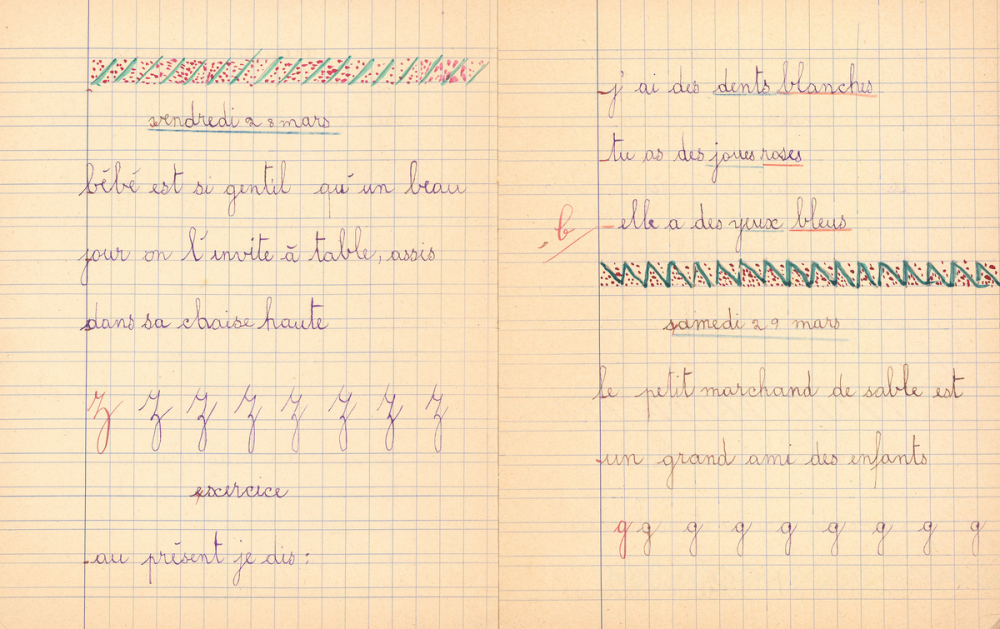 vendredi 28 mars
bébé est si gentil qu'un beau
jour on l'invite à table, assis
dans sa chaise haute
z z z z z z z z
exercice
au présent je dis :
j'ai des dents blanches
tu as des joues roses
b
elle a des yeux bleus
samedi 29 mars
le petit marchand de sable est
un grand ami des enfants
g g g g g g g g g